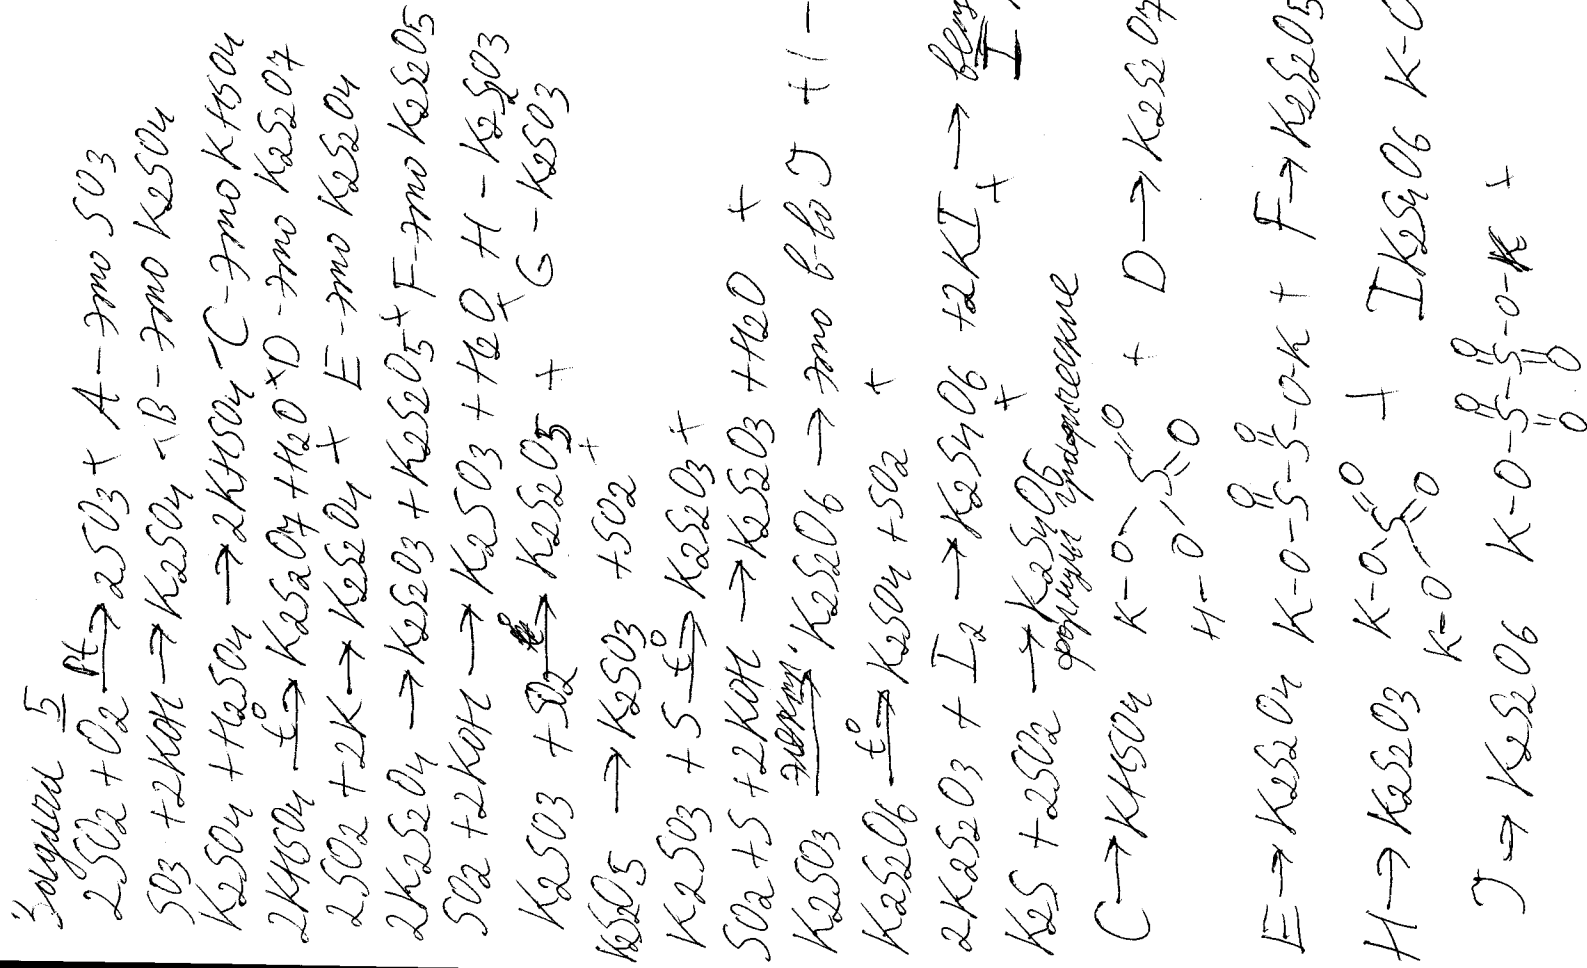 Задача 5
2SO2 + O2 —Pt→ 2SO3 + A - это SO3
SO3 + 2KOH → K2SO4 + B - это K2SO4
K2SO4 + H2SO4 → 2KHSO4 + C - это KHSO4
2KHSO4 —t°→ K2S2O7 + H2O + D - это K2S2O7
2SO2 + 2K → K2S2O4 + E - это K2S2O4
2K2S2O4 → K2S2O3 + K2S2O5 + F - это K2S2O5
SO2 + 2KOH → K2SO3 + H2O + H - K2S2O3
K2SO3 + SO2 → K2S2O5 + G - K2SO3
K2S2O5 → K2SO3 + SO2 +
K2SO3 + S —t°→ K2S2O3 +
SO2 + S + 2KOH → K2S2O3 + H2O +
K2SO3 —электр.→ K2S2O6 → это в-во J + 1 -
K2S2O6 —t°→ K2SO4 + SO2 +
2K2S2O3 + I2 → K2S4O6 + 2KI → вещ I
K2S + 2SO2 → K2S4O6 +
формулы графические
C → KHSO4 K-O H-O S =O =O + D → K2S2O7
E → K2S2O4 K-O-S-S-O-K =O =O + F → K2S2O5
H → K2S2O3 K-O K-O S =O =O + I K2S4O6 K-O
J → K2S2O6 K-O-S-S-O-K =O =O =O =O +